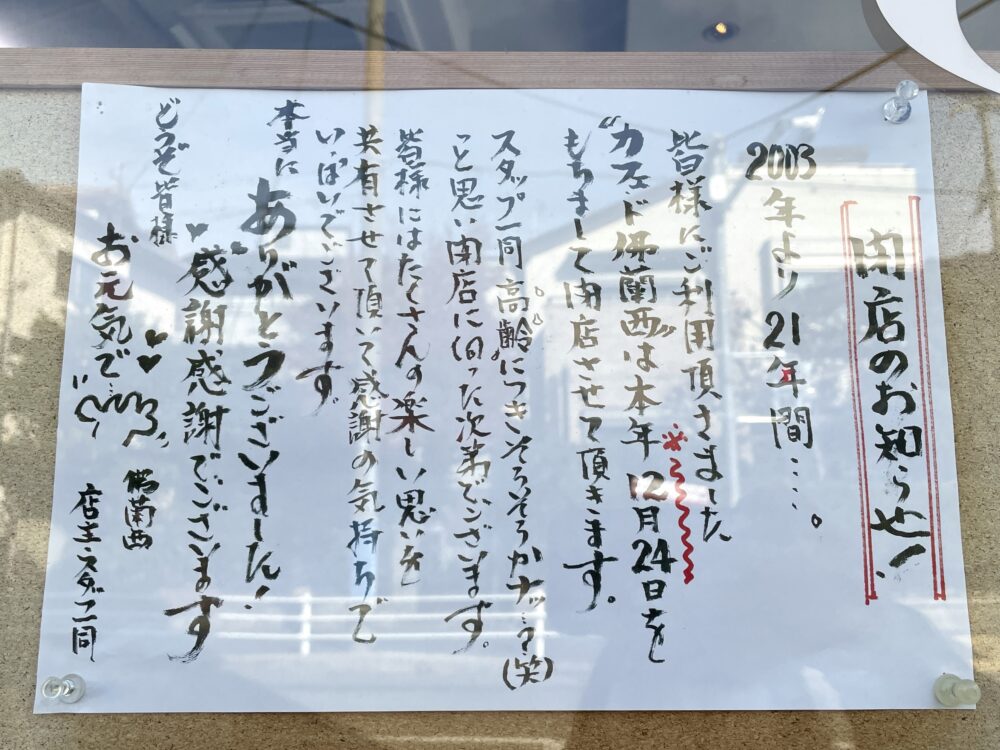 閉店のお知らせ!
2003年より21年間‥‥。
皆様にご利用頂きました
“カフェド佛蘭西”は本年※12月24日を
もちまして閉店させて頂きます。
スタッフ一同“高齢”につきそろそろかナッ…?(笑)
と思い閉店に(向)った次第でございます。
皆様にはたくさんの楽しい思いを
共有させて頂いて感謝の気持ちで
いっぱいでございます。
本当に
ありがとうございました!
“感謝感謝でございます
どうぞ皆様
お元気で…
佛蘭西
店主・スタッフ一同